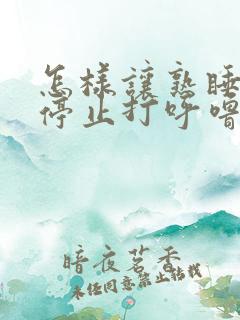 怎樣讓熟睡
停止打呼嚕
暗夜茗香
未经同意禁止转载